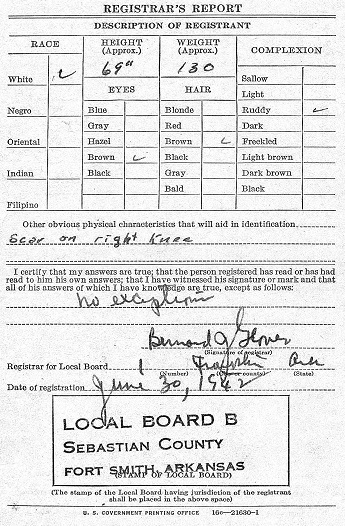 REGISTRAR'S REPORT
DESCRIPTION OF REGISTRANT
RACE
HEIGHT (Approx.)
WEIGHT (Approx.)
COMPLEXION
White ✓
69"
130
EYES
HAIR
Sallow
Light
Negro
Blue
Blonde
Ruddy ✓
Gray
Red
Dark
Oriental
Hazel
Brown ✓
Freckled
Brown ✓
Black
Light brown
Indian
Black
Gray
Dark brown
Bald
Black
Filipino
Other obvious physical characteristics that will aid in identification
Scar on right Knee
I certify that my answers are true; that the person registered has read or has had
read to him his own answers; that I have witnessed his signature or mark and that
all of his answers of which I have knowledge are true, except as follows:
no exceptions
Bernard G Glover
(Signature of registrar)
Registrar for Local Board 1 Franklin Ark
(Number) (City or county) (State)
Date of registration June 30, 1942
LOCAL BOARD B
SEBASTIAN COUNTY
FORT SMITH, ARKANSAS
(STAMP OF LOCAL BOARD)
(The stamp of the Local Board having jurisdiction of the registrant
shall be placed in the above space)
U. S. GOVERNMENT PRINTING OFFICE 16c—21630-1